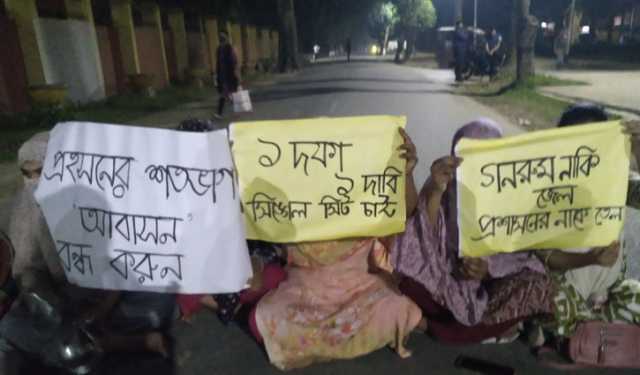 প্রহসনের শতভাগ
"আবাসন"
বন্ধ করুন
১ দফা
২ দাবি
সিঙ্গেল সিট চাই
গনরুম নাকি
জেল
প্রশাসনের নাকে তেল